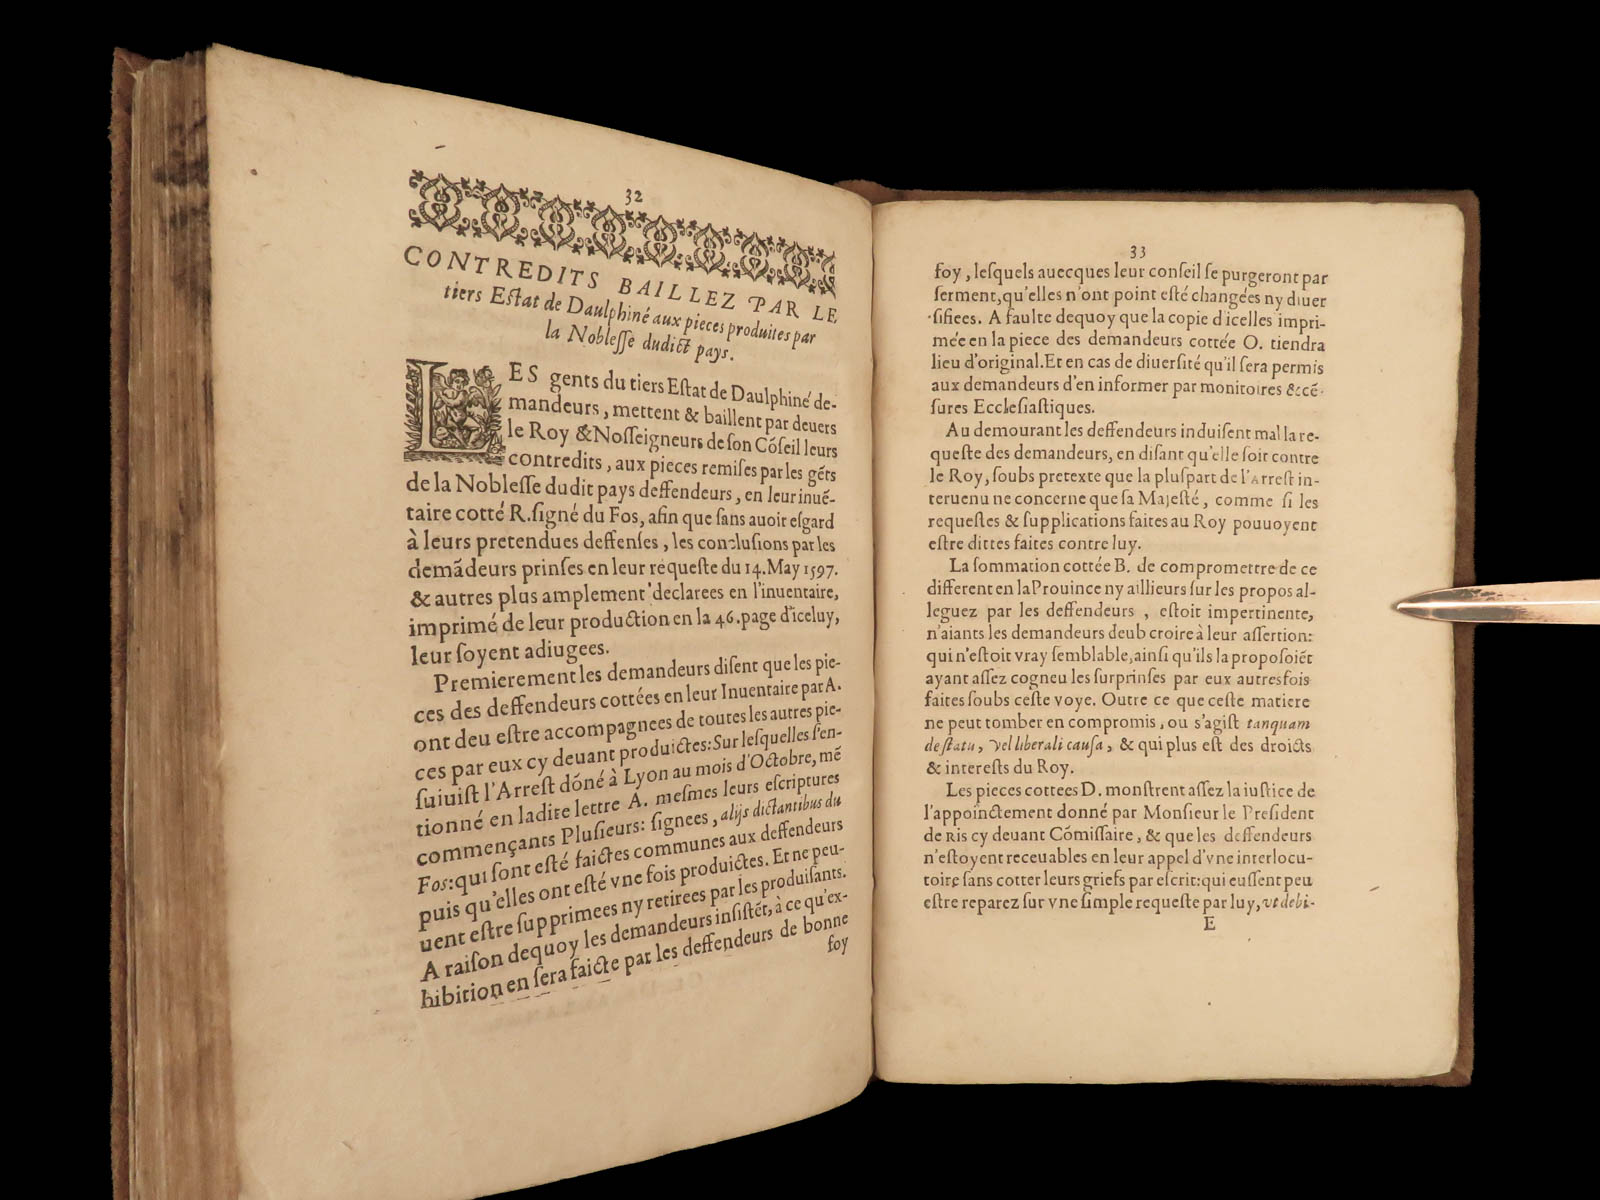 32
CONTREDITS BAILLEZ PAR LE
tiers Eſtat de Daulphiné aux pieces produites par
la Nobleſſe dudict pays.
LES gents du tiers Eſtat de Daulphiné de-
mandeurs, mettent & baillent par deuers
le Roy & Noſſeigneurs de ſon Cõſeil leurs
contredits, aux pieces remiſes par les gẽts
de la Nobleſſe dudit pays deffendeurs, en leur inuẽ-
taire cotté R. ſigné du Fos, afin que ſans auoir eſgard
à leurs pretendues deffenſes, les concluſions par les
demãdeurs prinſes en leur requeſte du 14. May 1597.
& autres plus amplement declarees en l'inuentaire,
imprimé de leur production en la 46. page d'iceluy,
leur ſoyent adiugees.
Premierement les demandeurs diſent que les pie-
ces des deffendeurs cottées en leur Inuentaire par A.
ont deu eſtre accompagnees de toutes les autres pie-
ces par eux cy deuant produictes: Sur leſquelles ſ'en-
ſuiuiſt l'Arreſt dóné à Lyon au mois d'Octobre, mẽ
tionné en ladite lettre A. meſmes leurs eſcriptures
commençants Pluſieurs: ſignees, alijs dictantibus du
Fos: qui ſont eſté faictes communes aux deffendeurs
puis qu'elles ont eſté vne fois produictes. Et ne peu-
uent eſtre ſupprimees ny retirees par les produiſants.
A raiſon dequoy les demandeurs inſiſtẽt, à ce qu'ex-
hibition en ſera faicte par les deffendeurs de bonne
foy
33
foy, leſquels auecques leur conſeil ſe purgeront par
ſerment, qu'elles n'ont point eſté changées ny diuer
ſifiees. A faulte dequoy que la copie d'icelles impri-
mée en la piece des demandeurs cottée O. tiendra
lieu d'original. Et en cas de diuerſité qu'il ſera permis
aux demandeurs d'en informer par monitoires & cẽ-
ſures Eccleſiaſtiques.
Au demourant les deffendeurs induiſent mal la re-
queſte des demandeurs, en diſant qu'elle ſoit contre
le Roy, ſoubs pretexte que la pluſpart de l'Arreſt in-
teruenu ne concerne que ſa Majeſté, comme ſi les
requeſtes & ſupplications faites au Roy pouuoyent
eſtre dittes faites contre luy.
La ſommation cottée B. de compromettre de ce
different en la Prouince ny aillieurs ſur les propos al-
leguez par les deffendeurs, eſtoit impertinente,
n'aiants les demandeurs deub croire à leur aſſertion:
qui n'eſtoit vray ſemblable, ainſi qu'ils la propoſoiẽt
ayant aſſez cogneu les ſurprinſes par eux autresfois
faites ſoubs ceſte voye. Outre ce que ceſte matiere
ne peut tomber en compromis, ou s'agiſt tanquam
de ſtatu, vel liberali cauſa, & qui plus eſt des droicts
& intereſts du Roy.
Les pieces cottees D. monſtrent aſſez la iuſtice de
l'appoinctement donné par Monſieur le Preſident
de Ris cy deuant Cómiſſaire, & que les deffendeurs
n'eſtoyent receuables en leur appel d'vne interlocu-
toire ſans cotter leurs griefs par eſcrit: qui euſſent peu
eſtre reparez ſur vne ſimple requeſte par luy, vt debi-
E